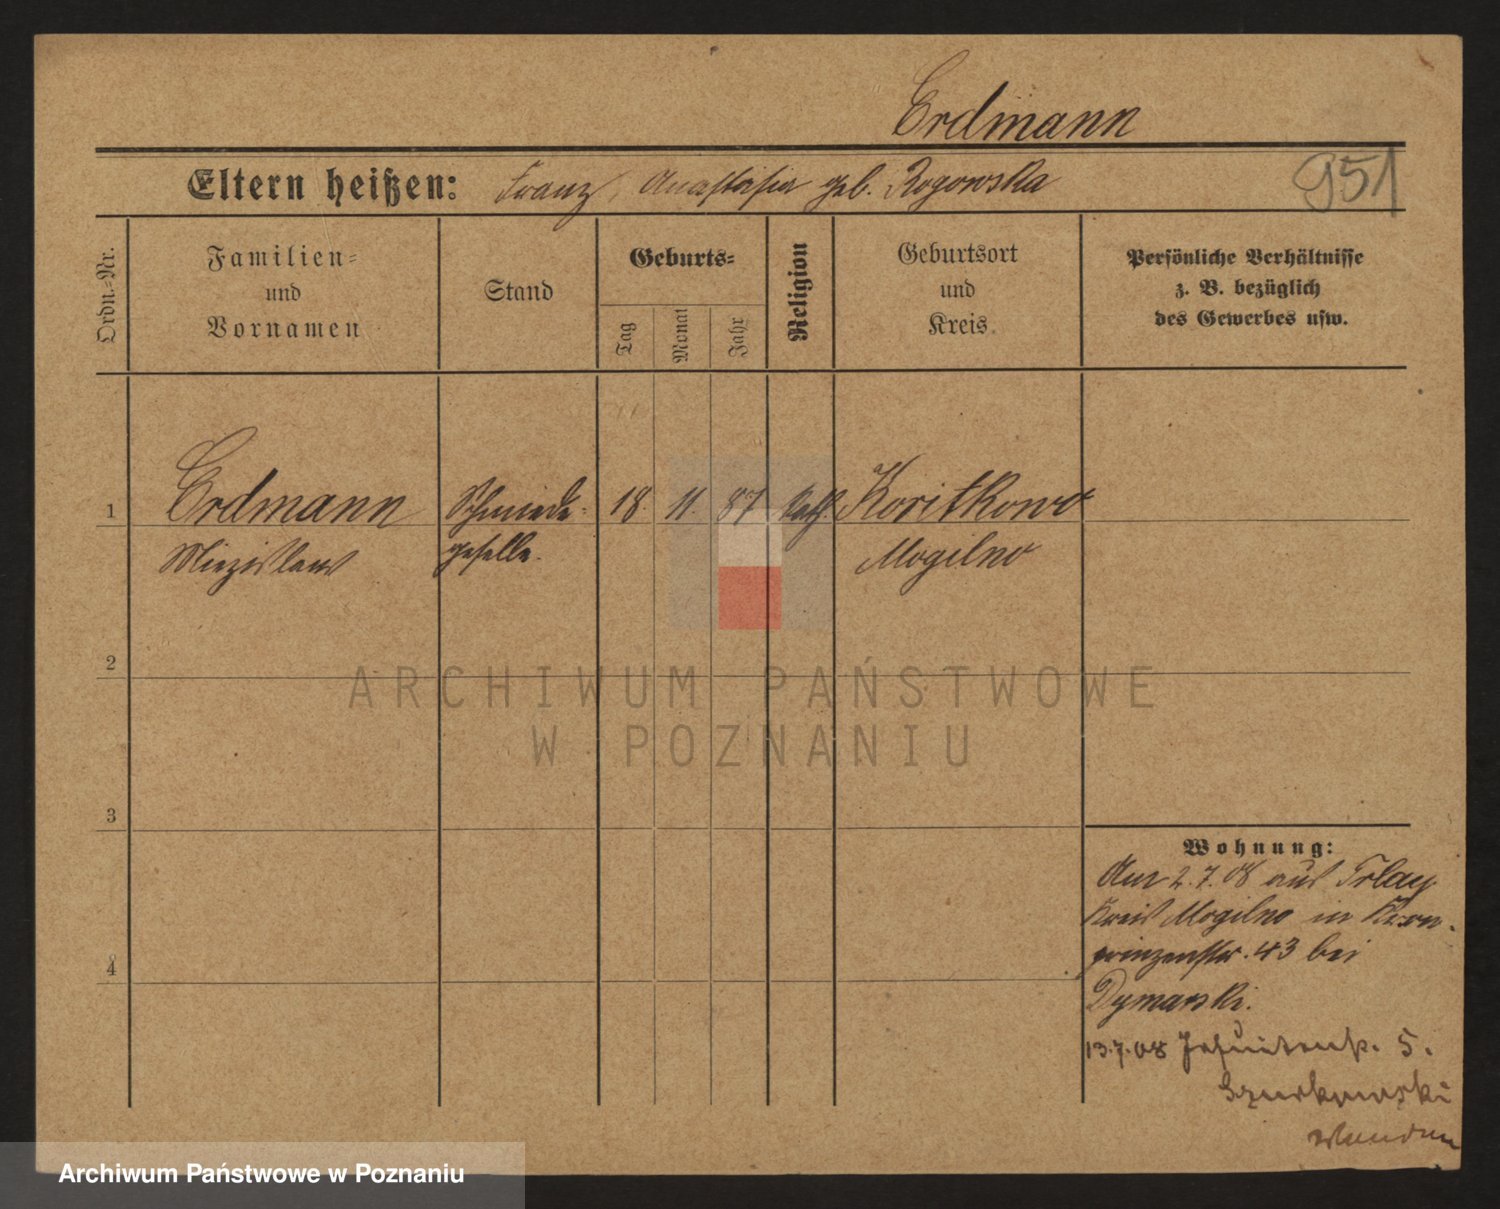 Erdmann
Eltern heißen: Franz, Anastasia geb. Rogowska
951
Ordn.-Nr.
Familien-
und
Vornamen
Stand
Geburts-
Tag
Monat
Jahr
Religion
Geburtsort
und
Kreis.
Persönliche Verhältnisse
z. B. bezüglich
des Gewerbes usw.
1
Erdmann Schmiede- 18. 11. 87 kath. Koritkowo
Miezislaus geselle. Mogilno
2
ARCHIWUM PAŃSTWOWE
W POZNANIU
3
Wohnung:
Am 2.7.08 aus Trlag
Kreis Mogilno in Kron-
prinzenstr. 43 bei
4
Dymarski.
13.7.08 Jesuitenstr. 5.
Archiwum Państwowe w Poznaniu